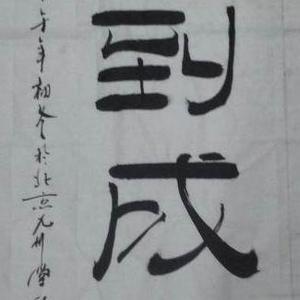 到成
年初冬於北京九州